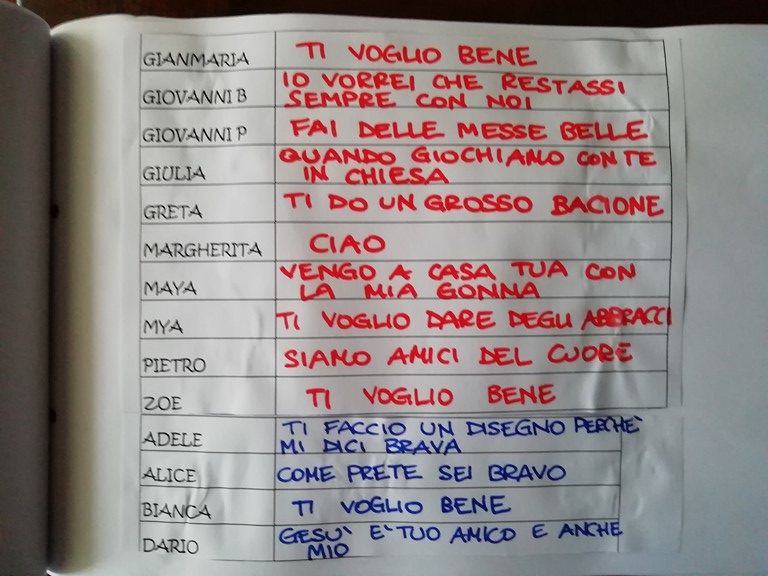 GIANMARIA TI VOGLIO BENE
GIOVANNI B IO VORREI CHE RESTASSI
SEMPRE CON NOI
GIOVANNI P FAI DELLE MESSE BELLE
GIULIA QUANDO GIOCHIAMO CON TE
IN CHIESA
GRETA TI DO UN GROSSO BACIONE
MARGHERITA CIAO
MAYA VENGO A CASA TUA CON
LA MIA GONNA
MYA TI VOGLIO DARE DEGLI ABBRACCI
PIETRO SIAMO AMICI DEL CUORE
ZOE TI VOGLIO BENE
ADELE TI FACCIO UN DISEGNO PERCHE'
MI DICI BRAVA
ALICE COME PRETE SEI BRAVO
BIANCA TI VOGLIO BENE
DARIO GESU' E' TUO AMICO E ANCHE
MIO